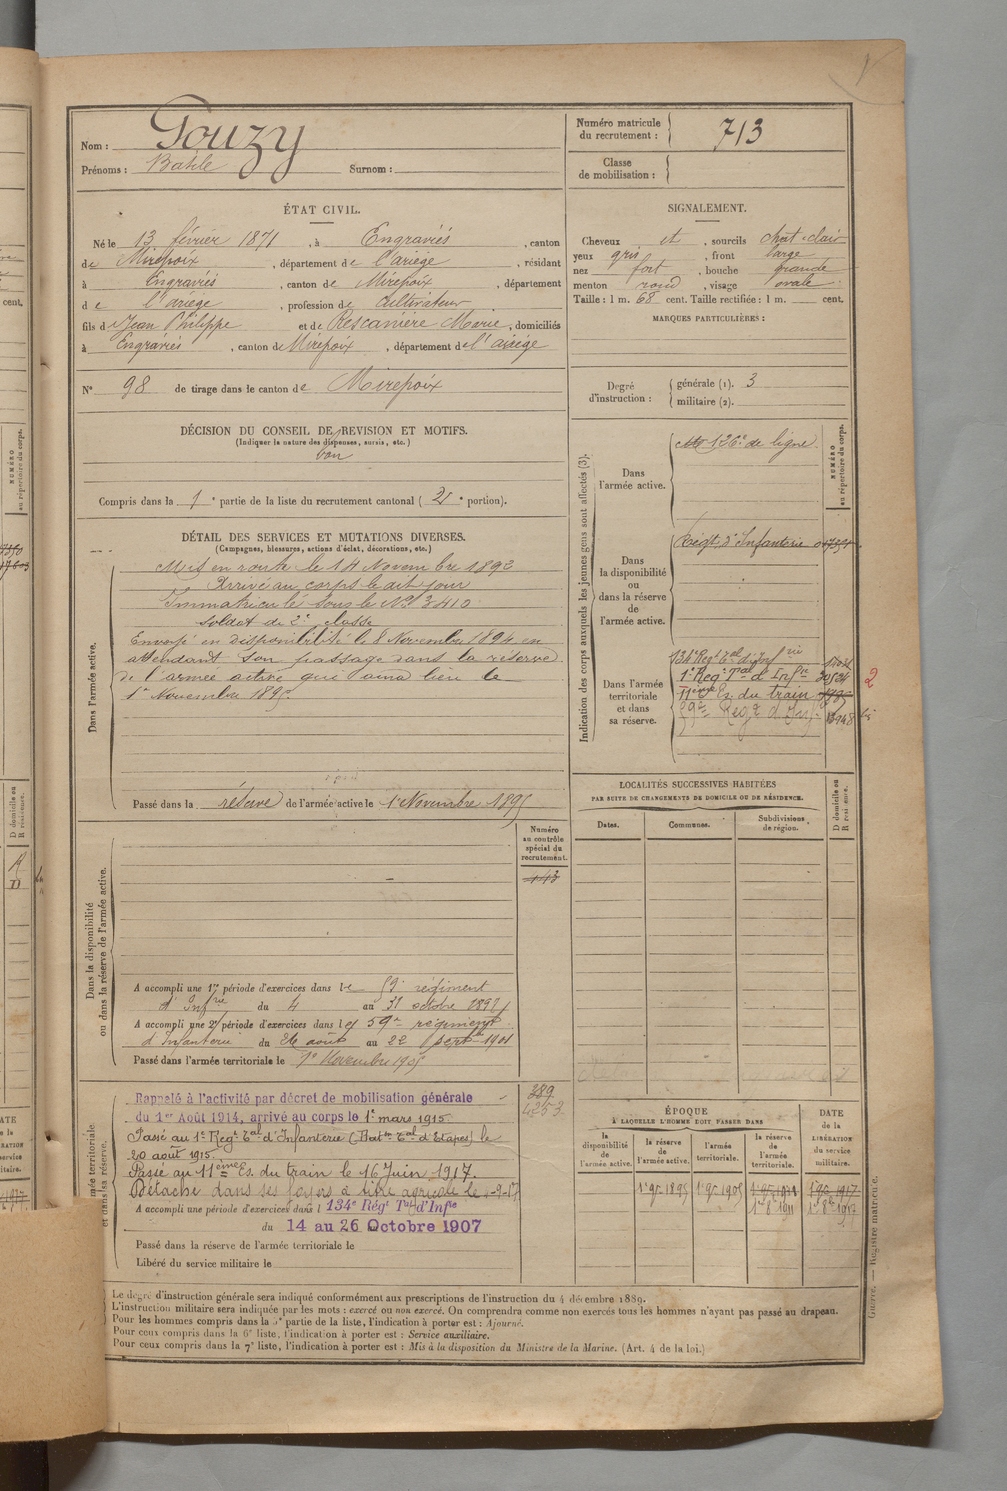 Nom : Gouzy
Prénoms : Basile Surnom :
Numéro matricule du recrutement : 713
Classe de mobilisation :
ÉTAT CIVIL.
Né le 13 février 1871, à Engraviès, canton
de Mirepoix, département de l'ariège, résidant
à Engraviès, canton de Mirepoix, département
de l'ariège, profession de Cultivateur
fils de Jean Philippe et de Rescanière Marie, domiciliés
à Engraviès, canton de Mirepoix, département de l'ariége
N° 98 de tirage dans le canton de Mirepoix
SIGNALEMENT.
Cheveux et, sourcils chat-clair
yeux gris, front large
nez fort, bouche grande
menton rond, visage ovale
Taille : 1 m. 68 cent. Taille rectifiée : 1 m. cent.
MARQUES PARTICULIÈRES :
Degré d'instruction : générale (1). 3
militaire (2).
DÉCISION DU CONSEIL DE REVISION ET MOTIFS.
(Indiquer la nature des dispenses, sursis, etc.)
bon
Compris dans la 1e partie de la liste du recrutement cantonal (2e portion).
DÉTAIL DES SERVICES ET MUTATIONS DIVERSES.
(Campagnes, blessures, actions d'éclat, décorations, etc.)
Dans l'armée active.
Mis en route le 14 Novembre 1892
Arrivé au corps le dit jour
Immatriculé sous le No 3410
soldat de 2e classe
Envoyé en disponibilité le 8 Novembre 1894 en
attendant son passage dans la réserve
de l'armée active qui aura lieu le
1er Novembre 1895.
Passé dans la réserve de l'armée active le 1er Novembre 1895
Indication des corps auxquels les jeunes gens sont affectés (3).
NUMÉRO au répertoire du corps.
Dans l'armée active.
126e de ligne
Dans la disponibilité ou dans la réserve de l'armée active.
Régt d'Infanterie
Dans l'armée territoriale et dans sa réserve.
134e Regt Tal d'Infrie
1er Regt Tal d'Infrie
11ème Es. du train
59e Regt d'Inf.
2
LOCALITÉS SUCCESSIVES HABITÉES
PAR SUITE DE CHANGEMENTS DE DOMICILE OU DE RÉSIDENCE.
Dates. Communes. Subdivisions de région. D domicile ou R résidence.
Dans la disponibilité ou dans la réserve de l'armée active.
Numéro au contrôle spécial du recrutement.
143
A accompli une 1re période d'exercices dans le 59e régiment
d'Infrie du 4 au 31 octobre 1898
A accompli une 2e période d'exercices dans le 59e régiment
d'Infanterie du 26 août au 22 septbre 1901
Passé dans l'armée territoriale le 1er Novembre 1905
et dans sa réserve.
389
4253
Rappelé à l'activité par décret de mobilisation générale
du 1er Août 1914, arrivé au corps le 1er mars 1915.
Passé au 1er Regt Tal d'Infanterie (Bat on Tal d'Etapes) le
20 août 1915.
Passé au 11ème Es. du train le 16 Juin 1917.
Détaché dans ses foyers à titre agricole le 1-9-17
A accompli une période d'exercices dans l 134e Régt Tal d'Infie
du 14 au 26 Octobre 1907
Passé dans la réserve de l'armée territoriale le
Libéré du service militaire le
ÉPOQUE
A LAQUELLE L'HOMME DOIT PASSER DANS
DATE de la LIBÉRATION du service militaire.
la disponibilité de l'armée active. la réserve de l'armée active. l'armée territoriale. la réserve de l'armée territoriale.
1er 9bre 1895 1er 9bre 1905 1er 9bre 1911 1er 9bre 1917
1er 8bre 1911 1er 8bre 1917
Guerre. — Registre matricule.
Le degré d'instruction générale sera indiqué conformément aux prescriptions de l'instruction du 4 décembre 1889.
L'instruction militaire sera indiquée par les mots : exercé ou non exercé. On comprendra comme non exercés tous les hommes n'ayant pas passé au drapeau.
Pour les hommes compris dans la 5e partie de la liste, l'indication à porter est : Ajourné.
Pour ceux compris dans la 6e liste, l'indication à porter est : Service auxiliaire.
Pour ceux compris dans la 7e liste, l'indication à porter est : Mis à la disposition du Ministre de la Marine. (Art. 4 de la loi.)